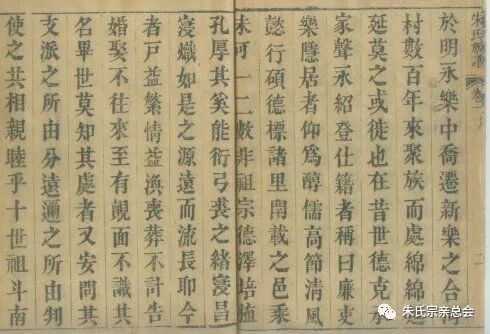 朱氏族譜
卷之九
二
於明永樂中喬遷新樂之合
村數百年來聚族而處綿綿
延莫之或徙也在昔世德克永
家聲永紹登仕籍者稱曰廉吏
樂隱居者仰爲醇儒高節清風
懿行碩德標諸里閈載之邑乘
未可一二數非祖宗德澤培植
孔厚其奚能衍弓裘之緒寖昌
寖熾如是之源遠而流長耶今
者戶益繁情益渙喪葬不計告
婚娶不往來至有覿面不識其
名畢世莫知其處者又安問其
支派之所由分遠邇之所由判
使之共相親睦乎十世祖斗南
朱氏宗亲总会